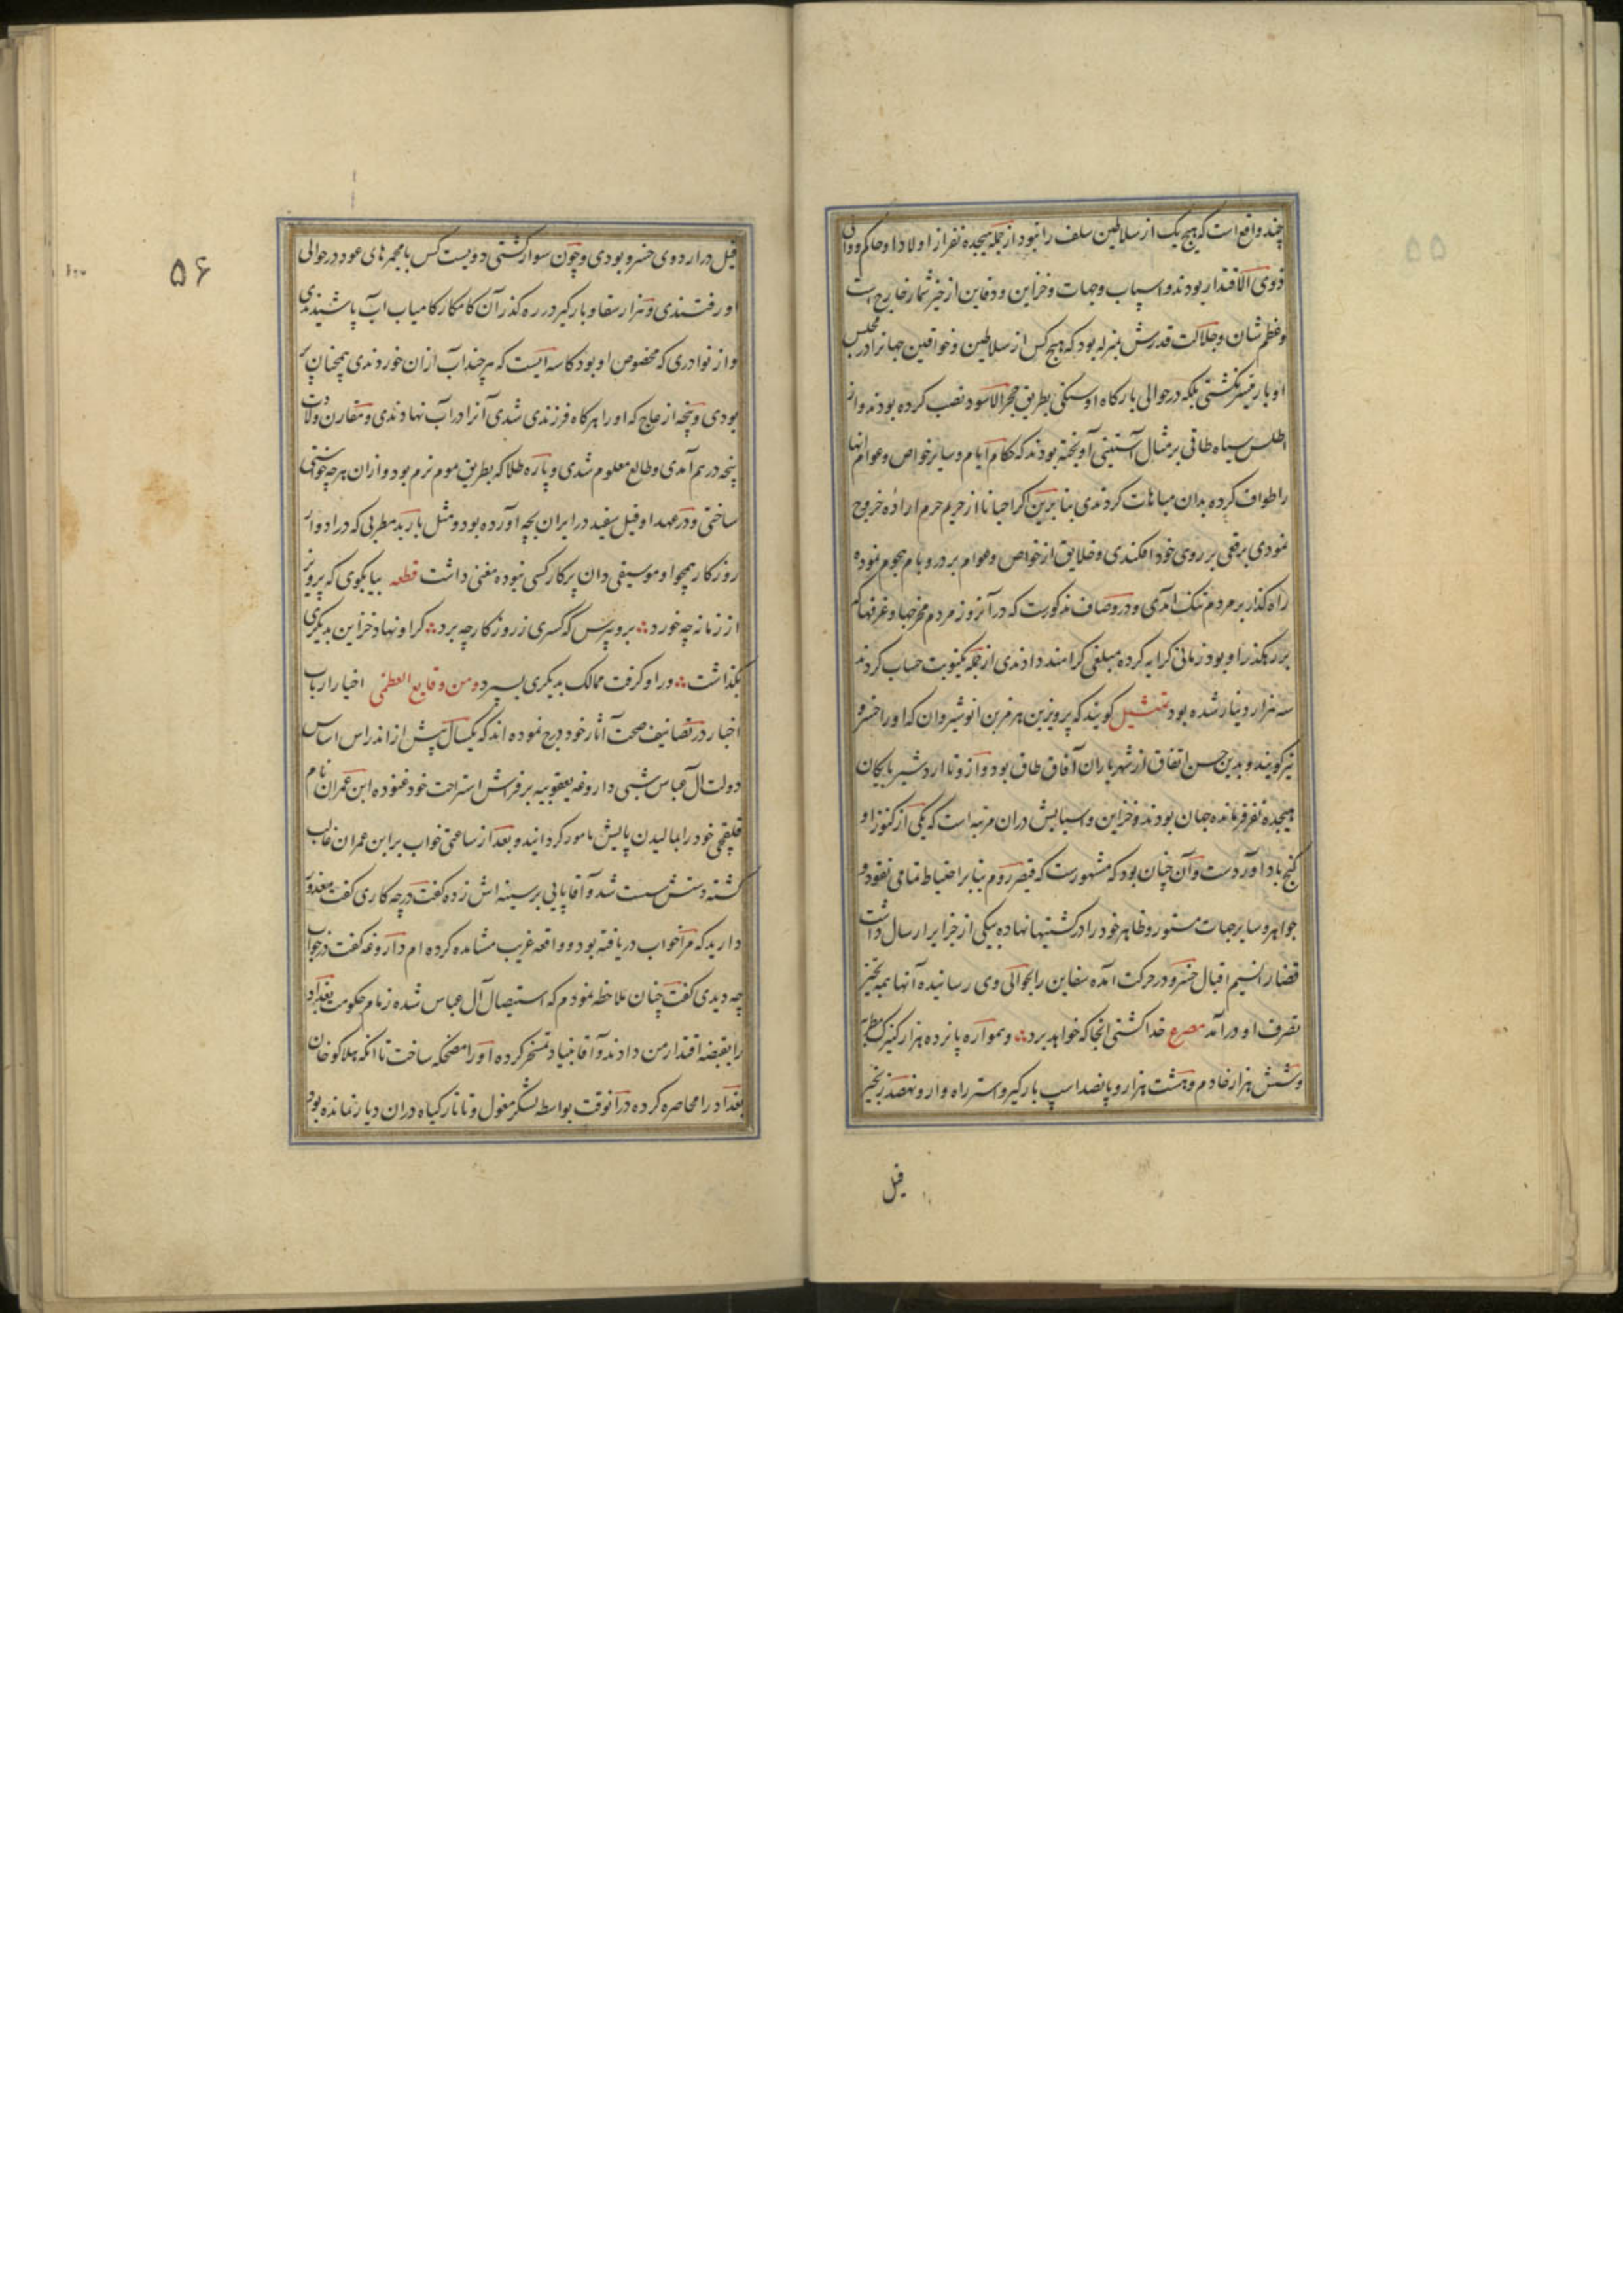 چند واقع است که هیچ یک از سلاطین سلف را نبود از جمله هیجده نفر از اولاد او حاکم و والی
ذوی الاقتدار بودند و اسباب وجهات و خزاین و دفاین از حیز شمار خارج است
و عظم شان و جلالت قدرش بمنزله بود که هیچ کس از سلاطین و خواقین جهانرا در مجلس
او بار میسر نکشتی بلکه در حوالی بارکاه او سنکی بطریق حجر الاسود نصب کرده بودند و از
اطلس سیاه طاقی بر مثال آستینی آویخته بودند که حکام ایام و سایر خواص و عوام انها
را طواف کرده بدان مباهات کردندی بنا برین اکر احیانا از حریم حرم اراده خروج
نمودی برقعی بر روی خود افکندی و خلایق از خواص و عوام بر در و بام هجوم نموده
راه کذار بر مردم تنک امدی و در وصاف مذکورست که در آنروز مردم مخرجها و غرفها که
بر رهکذر او بود زمانی کرایه کرده مبلغی کرامند دادندی از جمله یکنوبت حساب کردند
سه هزار دینار شده بود تمثیل کویند که پرویز بن هرمز بن انوشیروان که او را خسرو
نیز کویند و بدین حسن اتفاق از شهریاران آفاق طاق بود و از و تا اردشیر بابکان
هیجده نفر فرمانده جهان بودند و خزاین و اسبابش دران مرتبه است که یکی از کنوز او
کنج باد آوردست و آن چنان بود که مشهورست که قیصر روم بنا بر احتیاط تمامی نقود و
جواهر و سایر جهات مستور و ظاهر خود را در کشتیها نهاده بیکی از جزایر ارسال داشت
قضا را نسیم اقبال خسرو در حرکت آمده سفاین را بحوالی وی رسانیده آنها همه بحیز
تصرف او درآمد مصرع خدا کشتی انجا که خواهد برد و همواره پانزده هزار کنیزک مطربه
و شش هزار خادم و هشت هزار و پانصد اسپ بارکیر و استر راه وار و نهصد زنجیر
فیل
۵۵
۵۶
فیل در اردوی خسرو بودی و چون سوار کشتی دویست کس با مجمرهای عود در حوالی
او رفتندی و هزار سقا و بارکیر در ره کذر آن کامکار کامیاب اب پاشیدندی
و از نوادری که مخصوص او بود کاسه ایست که هر چند اب ازان خوردندی همچنان پر
بودی و پنجه از عاج که او را هر کاه فرزندی شدی آنرا در اب نهادندی و مقارن ولادت
پنجه در هم آمدی و طالع معلوم شدی و پاره طلا که بطریق موم نرم بود و ازان هر چه خواستی
ساختی و در عهد او فیل سفید در ایران بچه آورده بود و مثل باربد مطربی که در ادوار
روزکار همچو او موسیقی دان پرکار کسی نبوده مغنی داشت قطعه بیا بکوی که پرویز
از زمانه چه خورد برو بپرس که کسری ز روزکار چه برد کر او نهاد خزاین بدیکری
بکذاشت ور او کرفت ممالک بدیکری بسپرد و من وقایع العظمی اخیار ارباب
اخبار در تصانیف صحت آثار خود درج نموده اند که یکسال پیش از اندراس اساس
دولت آل عباس شبی داروغه یعقوبیه بر فراش استراحت خود غنوده ابن عمران نام
قلقچی خود را بمالیدن پایش مامور کردانید و بعد از ساعتی خواب بر ابن عمران غالب
کشته دستش سست شد و آقا پایی بر سینه اش زده کفت در چه کاری کفت معذور
دارید که مرا خواب دریافته بود و واقعه غریب مشاهده کرده ام داروغه کفت در خواب
چه دیدی کفت چنان ملاحظه نمودم که استیصال آل عباس شده زمام حکومت بغداد
را بقبضه اقتدار من دادند و آقا بنیاد تمسخر کرده او را مضحکه ساخت تا انکه هلاکو خان
بغداد را محاصره کرده در آنوقت بواسطه لشکر مغول و تاتار کیاه دران دیار نمانده بود